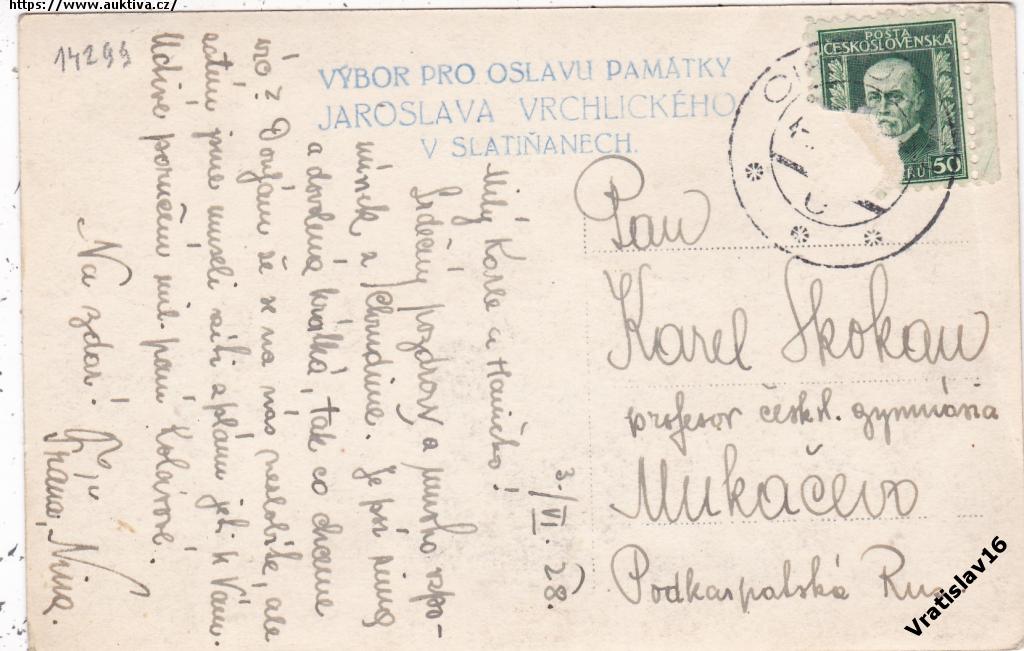 https://www.auktiva.cz/
14299
VÝBOR PRO OSLAVU PAMÁTKY
JAROSLAVA VRCHLICKÉHO
V SLATIŇANECH.
POŠTA
ČESKOSLOVENSKÁ
50
3./VI. 28.
Milý Karle a
Srdečný pozdrav a mnoho vzpo-
mínek z Chrudimě. Je prý
a dovolená krátká, tak co chceme
víc? Doufám že se na nás nezlobíte, ale
jsme museli zplánu k Vám.
Uctivé poručení mil. paní Kolářové.
Na zdar!
Nina.
Pan
Karel Skokan
profesor českl. gymnásia
Mukačevo
Podkarpatská Rus
Vratislav16